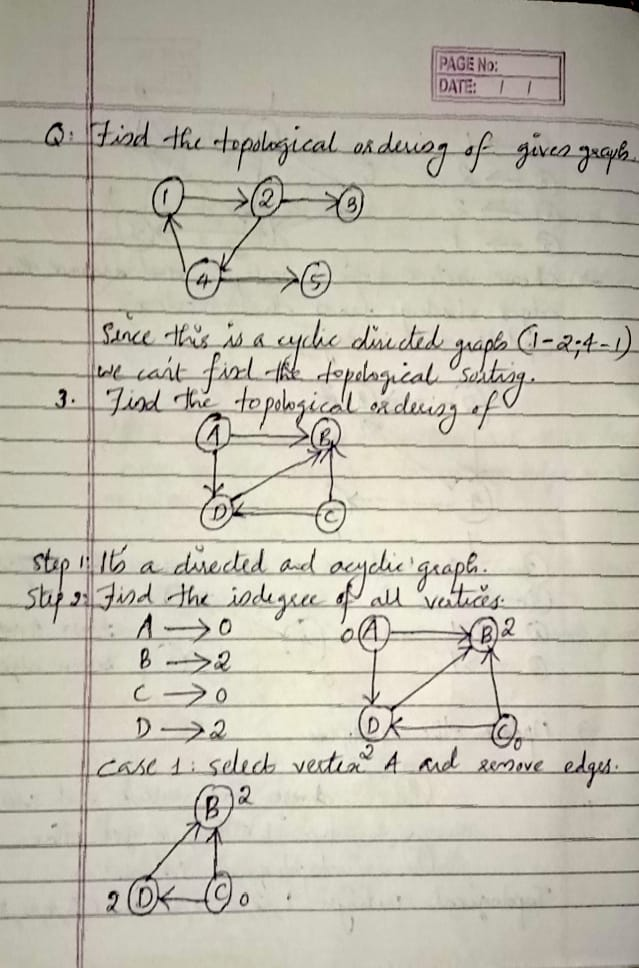 PAGE No:
DATE: / /
Q: Find the topological ordering of given graph.
1 2 3
4 5
Since this is a cyclic directed graph (1-2-4-1)
we can't find the topological sorting.
3. Find the topological ordering of
A B
D C
Step 1: It's a directed and acyclic graph.
Step 2: Find the indegree of all vertices.
: A → 0 0 A B 2
B → 2
C → 0
D → 2 D C 0
2
case 1: select vertex A and remove edges.
B 2
2 D C 0